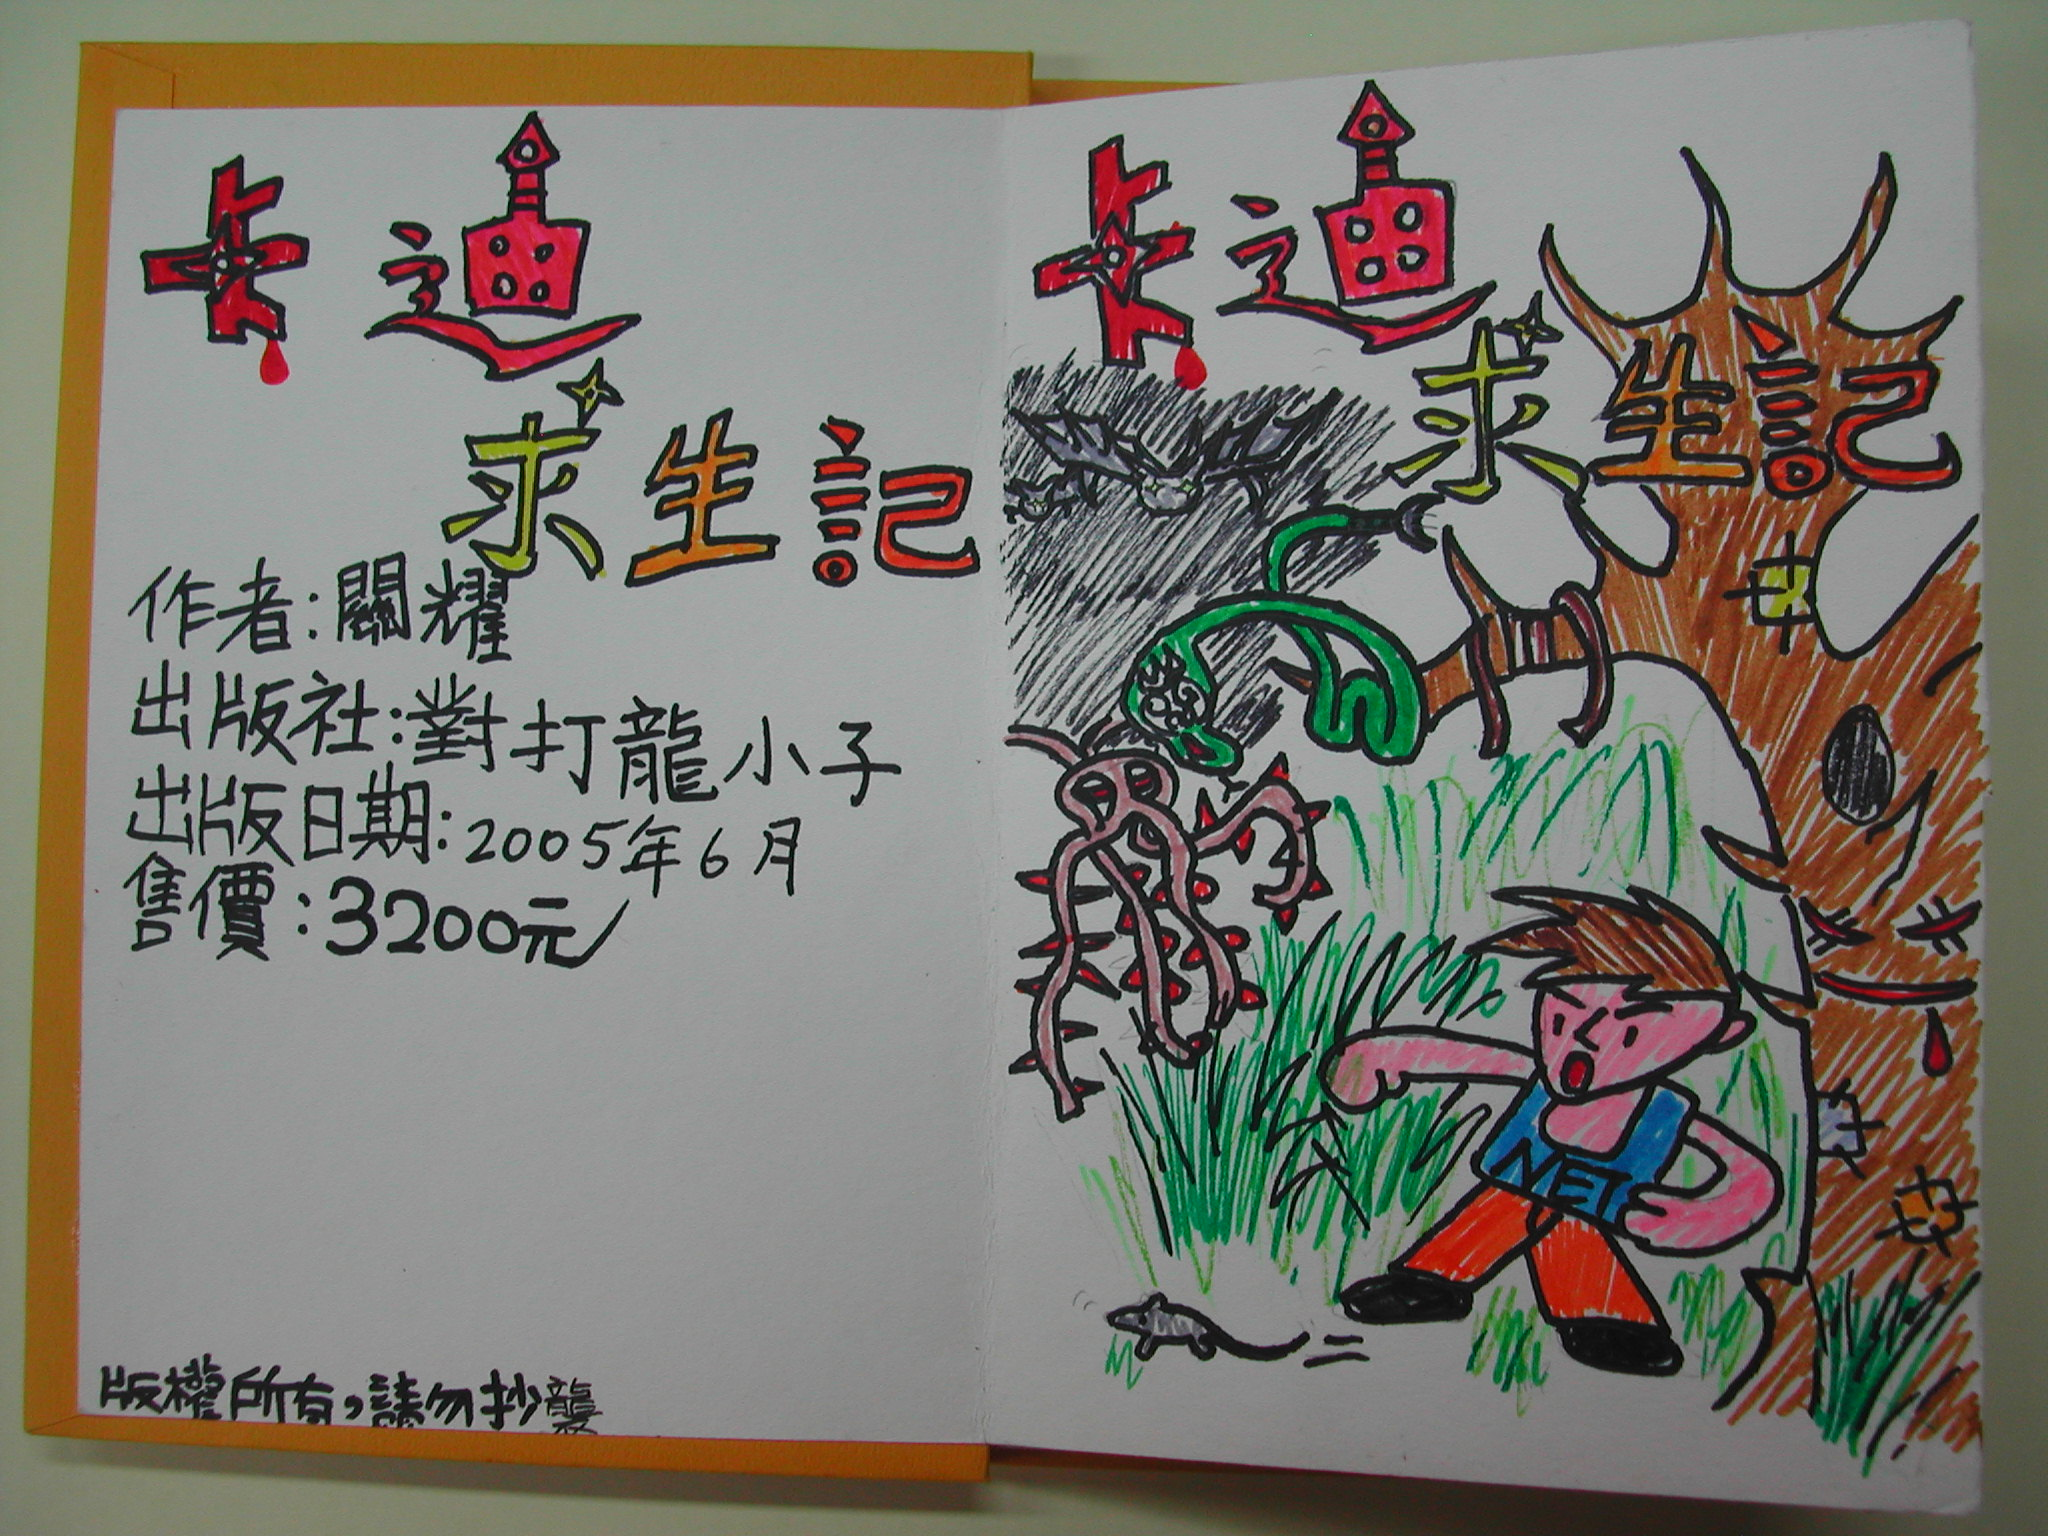 卡迪
求生記
作者:關耀
出版社:對打龍小子
出版日期:2005年6月
售價:3200元
版權所有,請勿抄襲
卡迪
求生記
NET